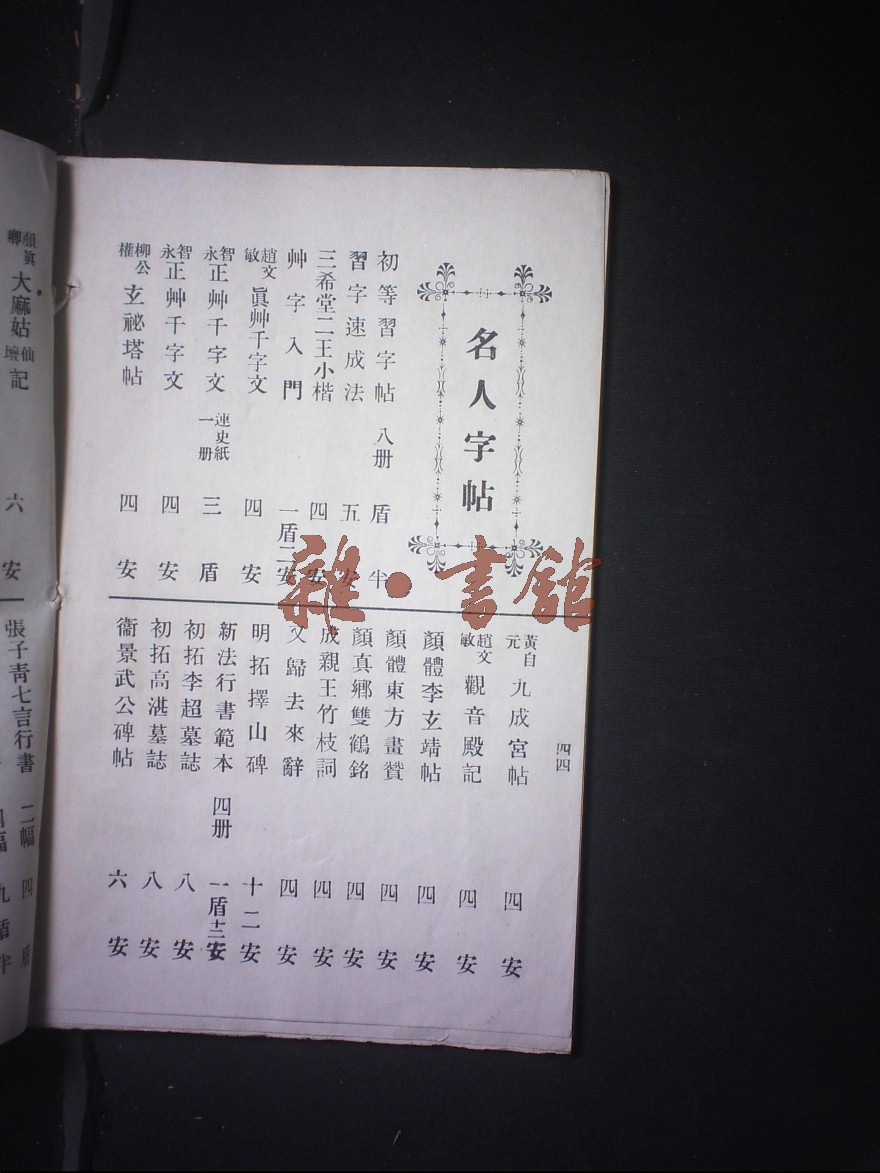 名人字帖
初等習字帖 八册 盾半
習字速成法 五安
三希堂二王小楷 四安
艸字入門 一盾二安
趙文敏 眞艸千字文 四安
智永 正艸千字文 連史紙一册 三盾
智永 正艸千字文 四安
柳公權 玄祕塔帖 四安
四四
黃自元 九成宮帖 四安
趙文敏 觀音殿記 四安
顏體李玄靖帖 四安
顏體東方畫贊 四安
顏真鄉雙鶴銘 四安
成親王竹枝詞 四安
文歸去來辭 四安
明拓擇山碑 十二安
新法行書範本 四册 一盾十二安
初拓李超墓誌 八安
初拓高湛墓誌 八安
衞景武公碑帖 六安
顏真鄉 大麻姑仙壇記 六安
張子青七言行書 二幅 四盾
九盾半
雜·書館